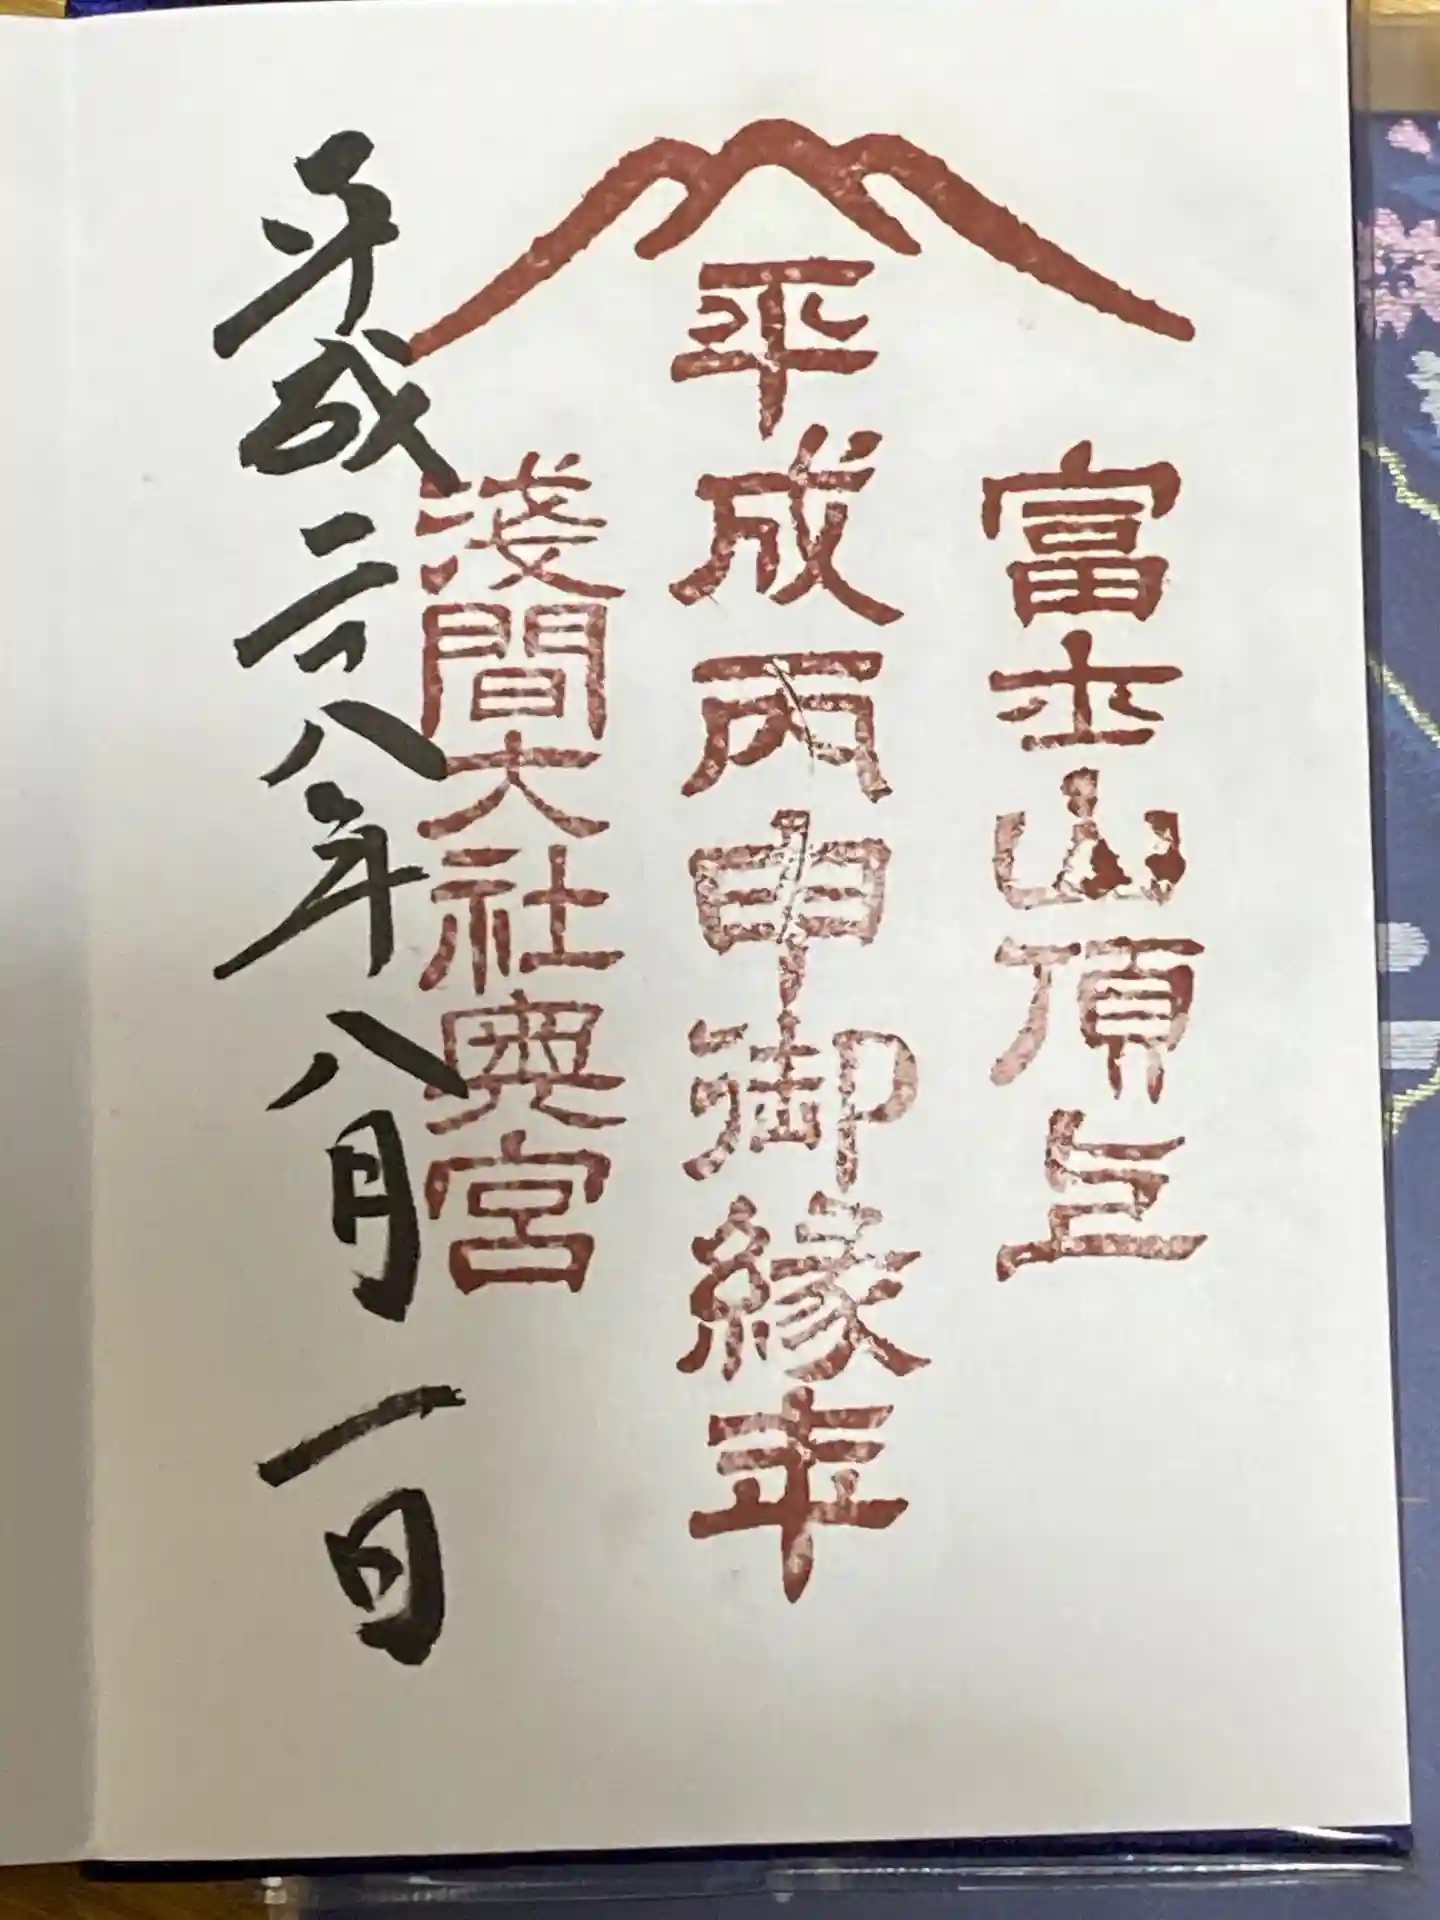 富士山頂上
平成丙申御縁年
浅間大社奥宮
平成二八年八月一日